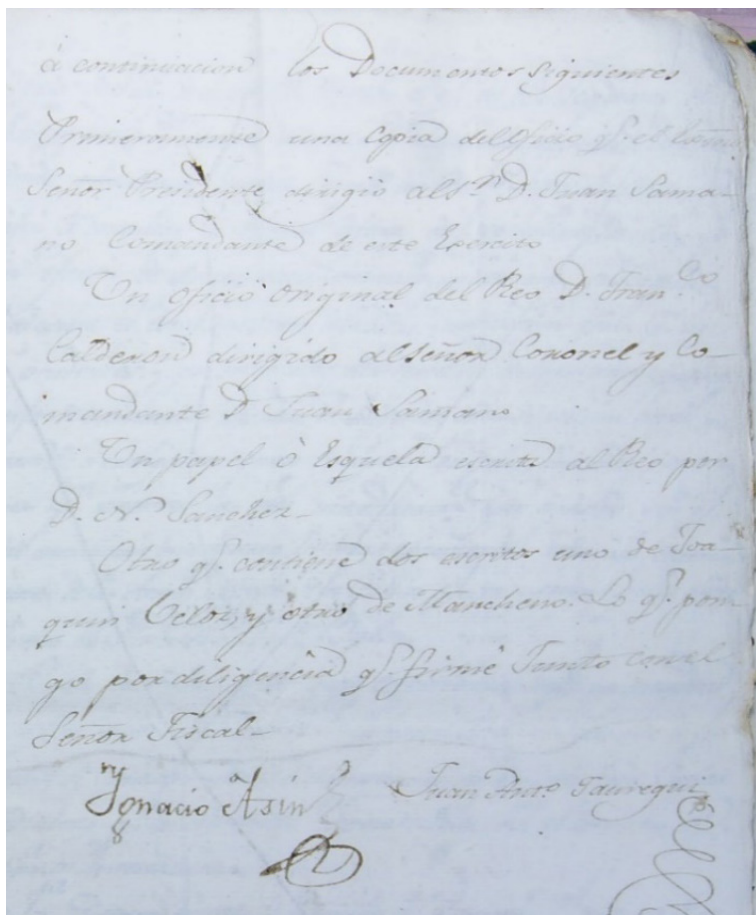 à continuacion los Documentos Siguientes
Primeramente una Copia del Oficio qe. el Exmo.
Señor Presidente dirigio al Sr. D. Juan Sama-
no Comandante de este Exercito
Un oficio original del Reo D. Franco.
Calderon dirigido al Señor Coronel y Co-
mandante D. Juan Samano
Un papel ò Esquela escrita al Reo por
D. N. Sanchez_
Otro qe. contiene dos escritos uno de Joa-
quin Veloz, y otro de Mancheno. Lo qe. pon-
go por diligencia qe. firmé Junto con el
Señor Fiscal_
Ygnacio Asin
Juan Anto. Jauregui